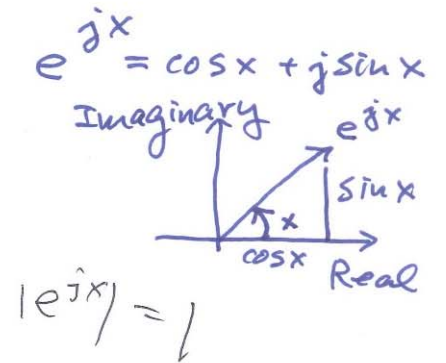 e^{jx} = cos x + j sin x
Imaginary
e^{jx}
sin x
x
cos x
Real
|e^{jx}| = 1